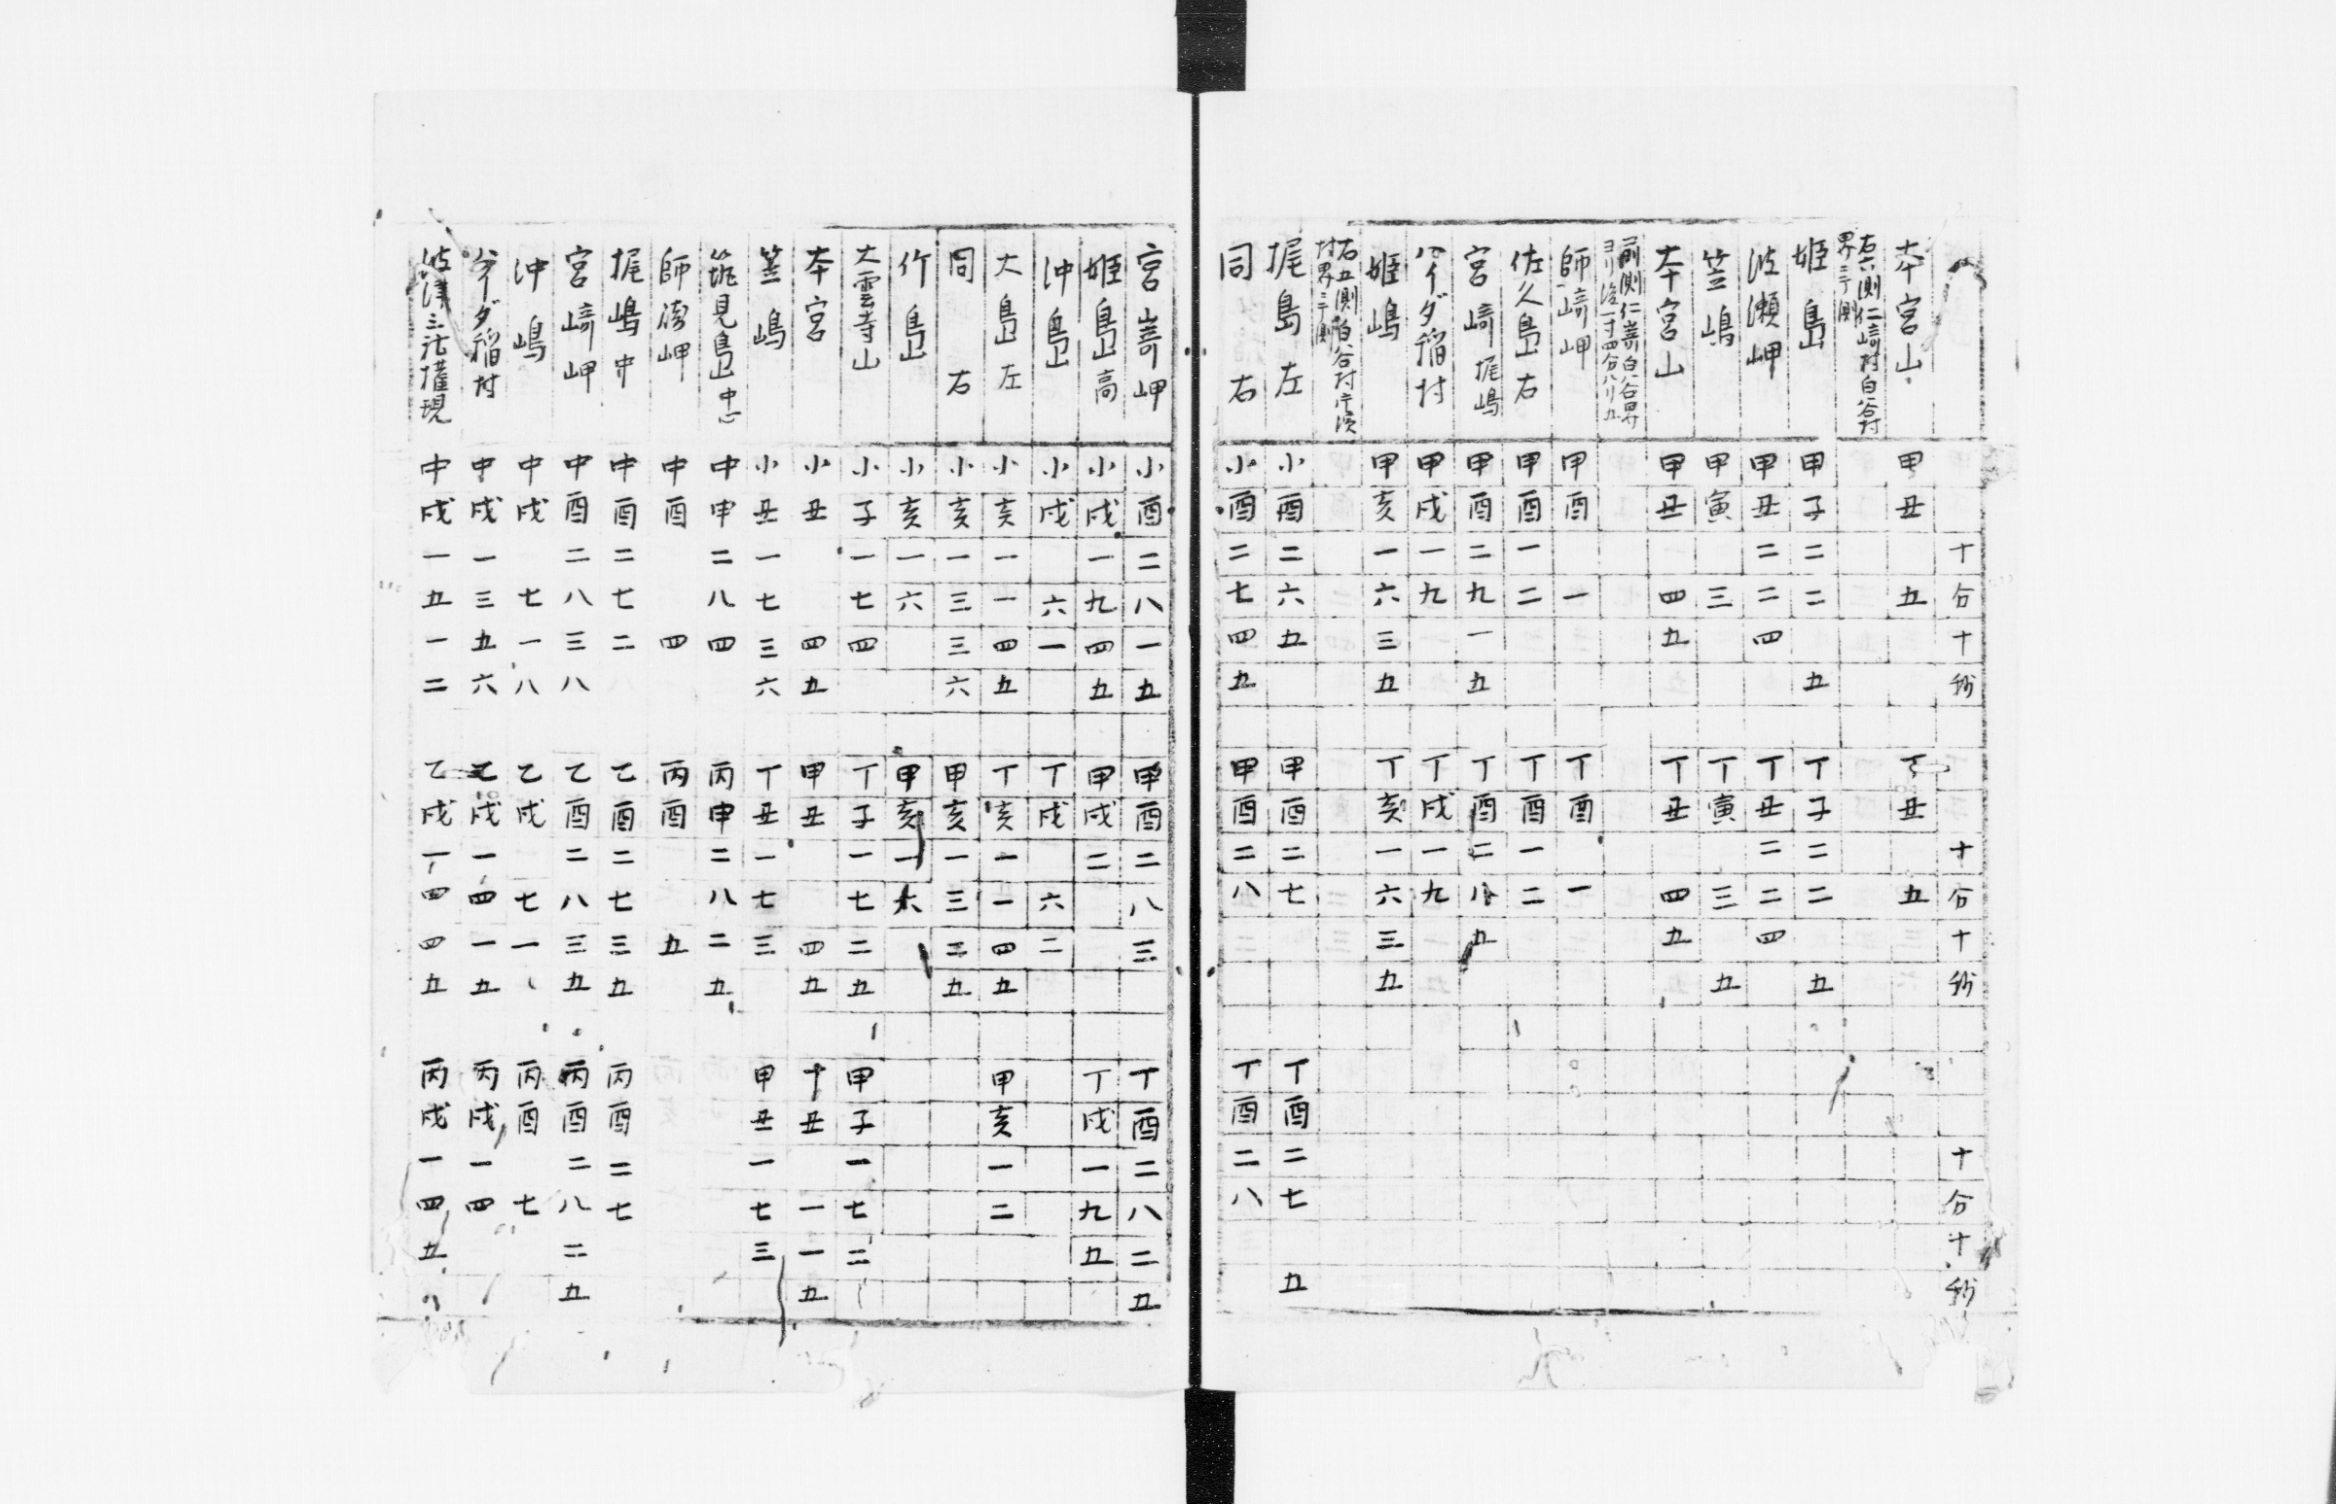 十分十秒 十分十秒 十分十秒
本宮山 甲丑 五 丁丑 五
右六測仁崎村白谷村界ニテ測
姫島 甲子二二 五 丁子二二 五
波瀬岬 甲丑二二四 丁丑二二四
笠嶋 甲寅 三 丁寅 三 五
本宮山 甲丑 四五 丁丑 四五
前測仁崎白谷界ヨリ
師崎岬 甲酉 一 丁酉 一
佐久島右 甲酉一二 丁酉一二
宮崎 梶嶋 甲酉二九一五 丁酉二八五
ハイダ稲村 甲戌一九 丁戌一九
姫嶋 甲亥一六三五 丁亥一六三五
右五測白谷村片濱村界ニテ測
梶島左 小酉二六五 甲酉二七 丁酉二七 五
同 右 小酉二七四五 甲酉二八 丁酉二八
宮崎岬 小酉二八一五 甲酉二八三 丁酉二八二五
姫島高 小戌一九四五 甲戌二 丁戌一九五
沖島 小戌 六一 丁戌 六二
大島左 小亥一一四五 丁亥一一四五 甲亥一二
同 右 小亥一三三六 甲亥一三三五
竹島 小亥一六 甲亥一六
大雲寺山 小子一七四 丁子一七二五 甲子一七二
本宮 小丑 四五 甲丑 四五 丑 一一五
笠嶋 小丑一七三六 丁丑一七三 甲丑一七三
筑見島中心 中申二八四 丙申二八二五
師崎岬 中酉 四 丙酉 五
梶嶋中 中酉二七二 乙酉二七三五 丙酉二七
宮崎岬 中酉二八三八 乙酉二八三五 丙酉二八二五
沖嶋 中戌 七一八 乙戌 七一 丙酉 七
イダ稲村 中戌一三五六 乙戌一四一五 丙戌一四
三法権現 中戌一五一二 乙戌一四四五 丙戌一四五